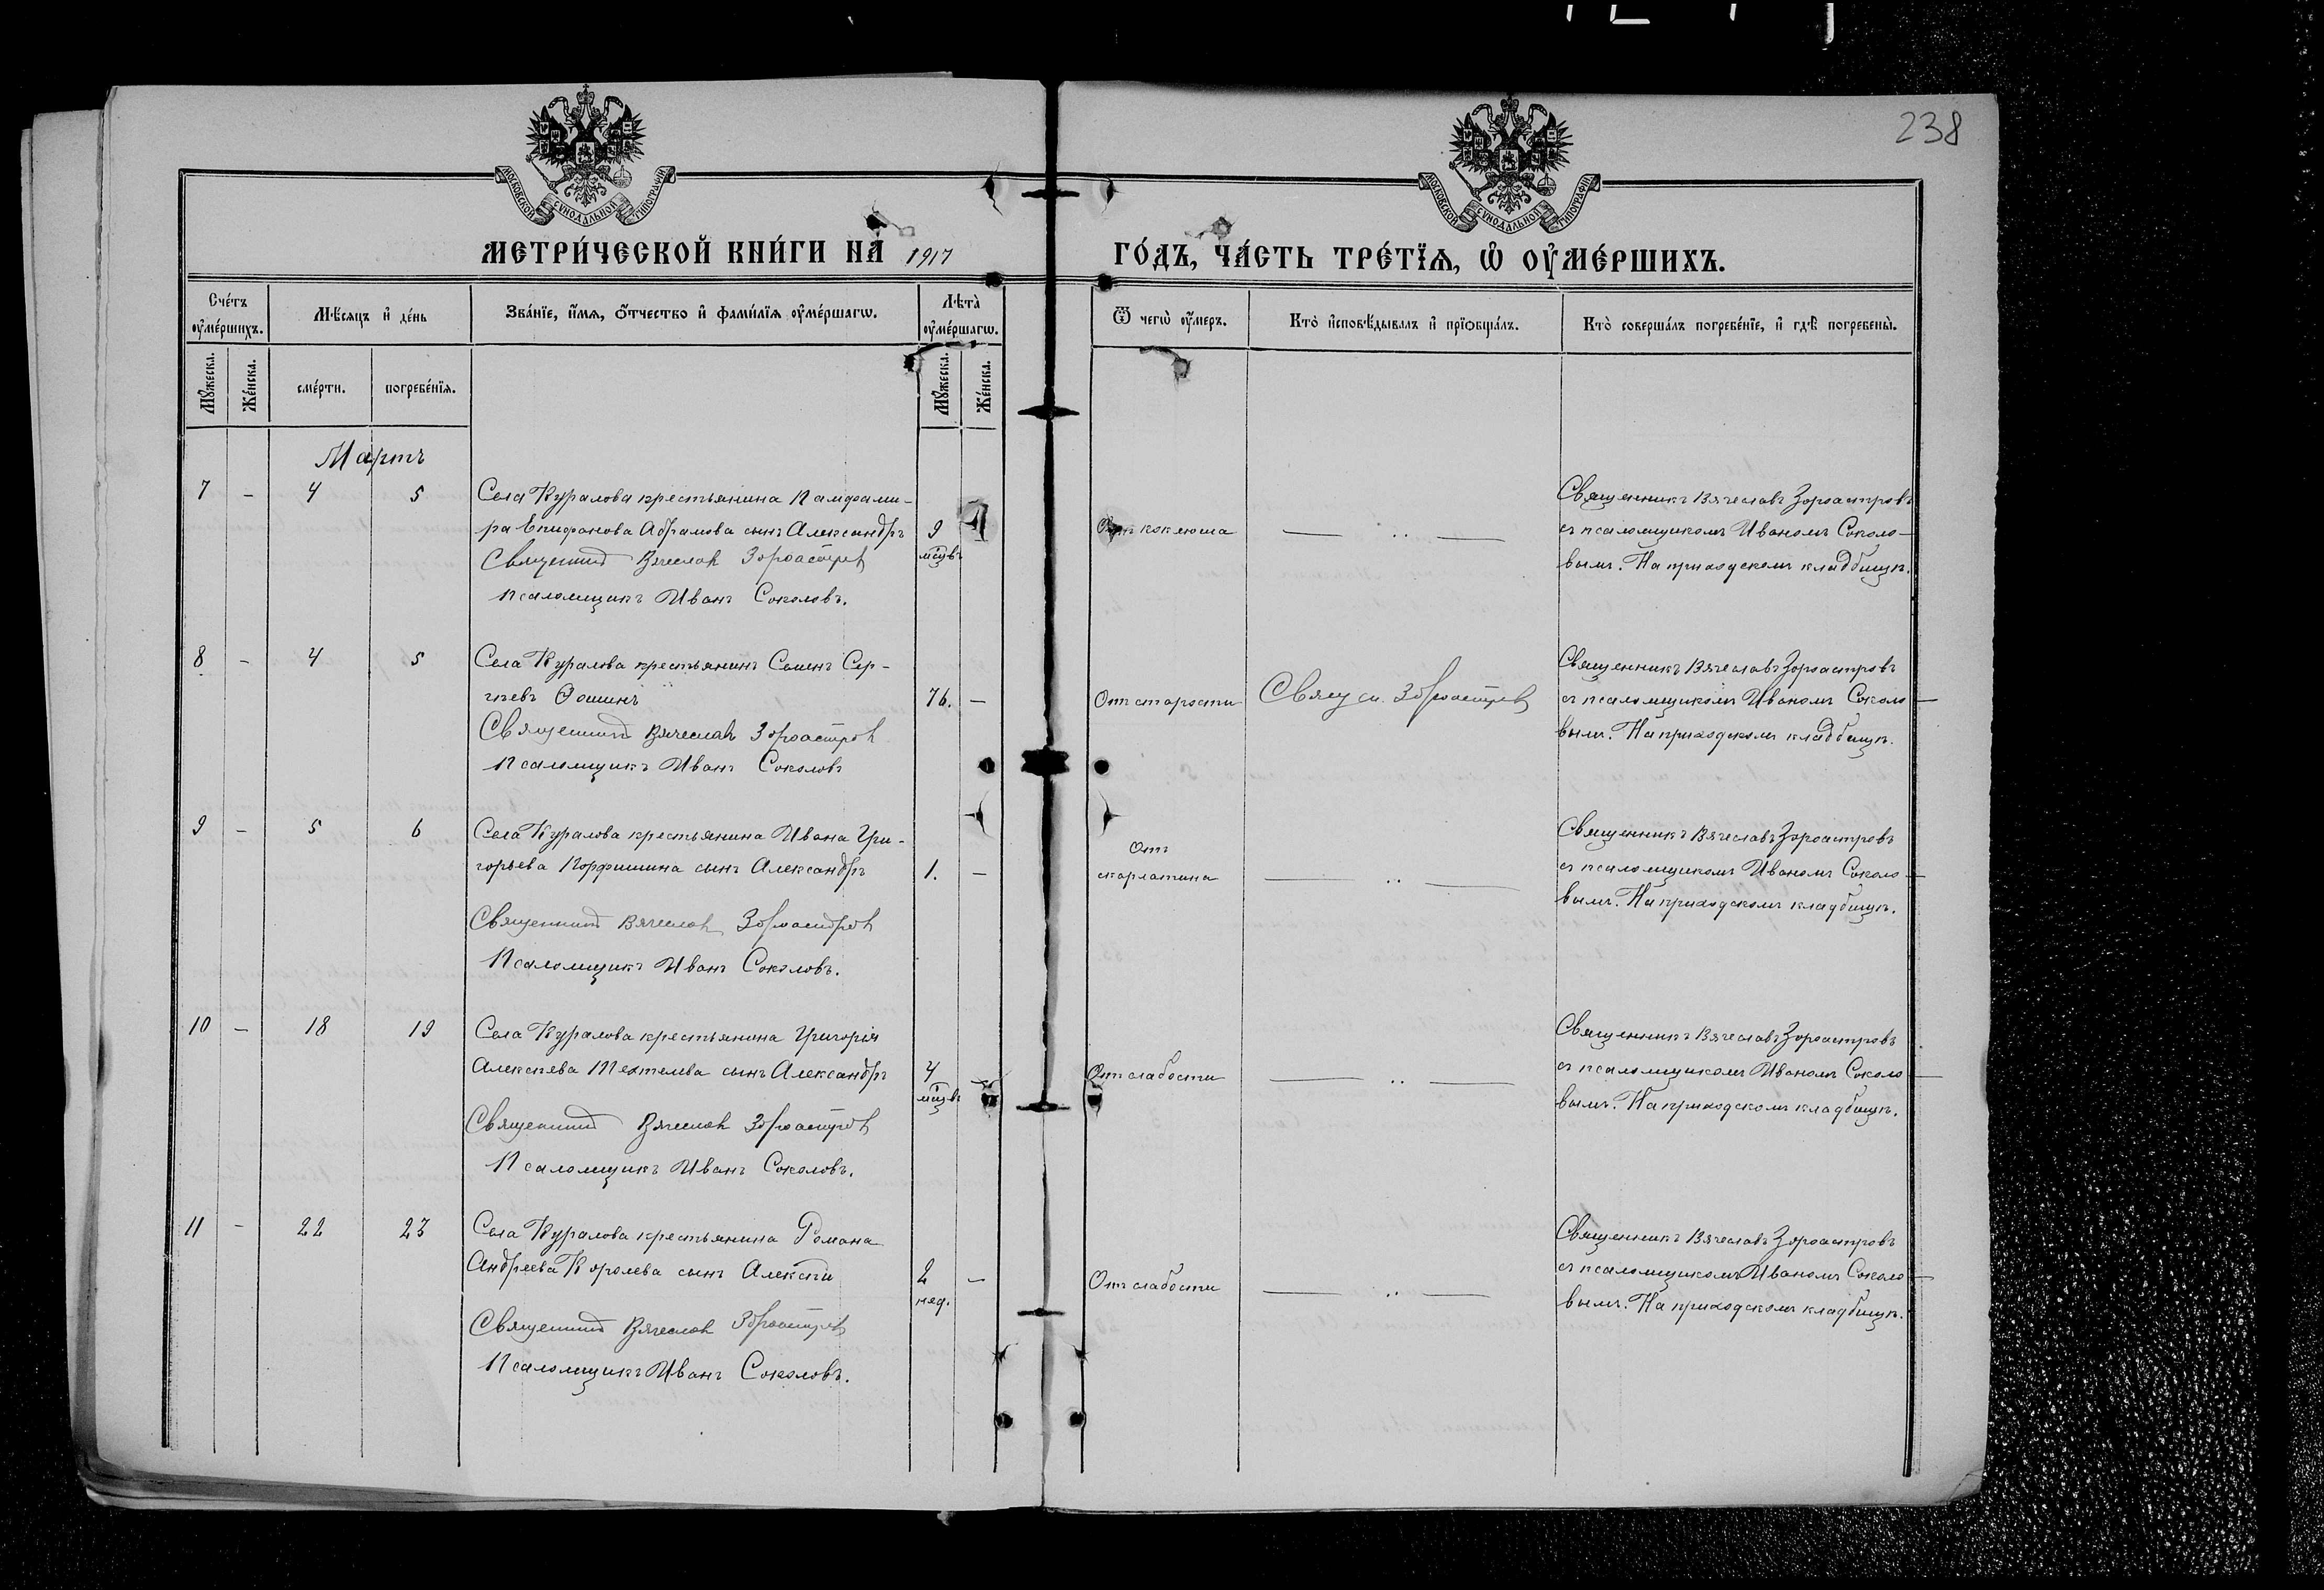 238
МОСКОВСКОЙ СѴНОДАЛЬНОЙ ТИПОГРАФІИ
МОСКОВСКОЙ СѴНОДАЛЬНОЙ ТИПОГРАФІИ
МЕТРИ́ЧЕСКОЙ КНИ́ГИ НА̀ 1917
ГО́ДЪ, ЧА́СТЬ ТРЕ́ТЇѦ, Ѡ҆ ОУ҆МЕ́РШИХЪ.
Сче́тъ оу҆ме́ршихъ.
Мѣ́сяцъ и҆ де́нь
Зва́нїе, и҆́мя, ѻ҆́тчество и҆ фами́лїя оу҆ме́ршагѡ.
Лѣта̀ оу҆ме́ршагѡ.
Ѿ чегѡ̀ оу҆́меръ.
Кто̀ и҆сповѣ́дывалъ и҆ прїѡбща́лъ.
Кто̀ соверша́лъ погребе́нїе, и҆ гдѣ̀ погребены̀.
Мꙋ́жеска.
Же́нска.
сме́рти.
погребе́нїя.
Мꙋ́жеска.
Же́нска.
Мартъ
7 – 4 5 Села Куралова крестьянина Памфами-
ра Епифанова Абрамова сынъ Александръ 9
мцвъ
Священник Вячеслав Зороастров
Псаломщикъ Иванъ Соколовъ.
Отъ коклюша — .. —
Священникъ Вячеславъ Зороастровъ
съ псаломщикомъ Иваномъ Соколо-
вымъ. На приходскомъ кладбищѣ.
8 – 4 5 Села Куралова крестьянинъ Семенъ Сер-
гѣевъ Ѳоминъ 76. –
Священник Вячеслав Зороастров
Псаломщикъ Иванъ Соколовъ
Отъ старости Свящ. Зороастров
Священникъ Вячеславъ Зороастровъ
съ псаломщикомъ Иваномъ Соколо-
вымъ. На приходскомъ кладбищѣ.
9 – 5 6 Села Куралова крестьянина Ивана Гри-
горьева Порфишина сынъ Александръ 1. –
Священник Вячеслав Зороастров
Псаломщикъ Иванъ Соколовъ.
Отъ
скарлатина — .. —
Священникъ Вячеславъ Зороастровъ
съ псаломщикомъ Иваномъ Соколо-
вымъ. На приходскомъ кладбищѣ.
10 – 18 19 Села Куралова крестьянина Григорія
Алексѣева Техтелева сынъ Александръ 4
мцвъ
Священник Вячеслав Зороастров
Псаломщикъ Иванъ Соколовъ.
Отъ слабости — .. —
Священникъ Вячеславъ Зороастровъ
съ псаломщикомъ Иваномъ Соколо-
вымъ. На приходскомъ кладбищѣ.
11 – 22 23 Села Куралова крестьянина Романа
Андреева Королева сынъ Алексѣй 2 –
нед.
Священник Вячеслав Зороастров
Псаломщикъ Иванъ Соколовъ.
Отъ слабости — .. —
Священникъ Вячеславъ Зороастровъ
съ псаломщикомъ Иваномъ Соколо-
вымъ. На приходскомъ кладбищѣ.